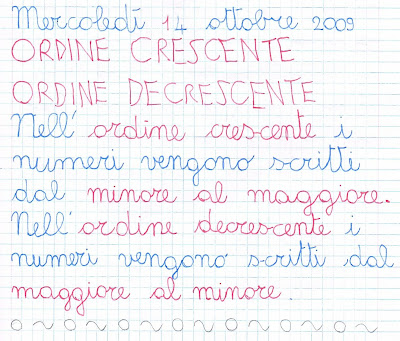 Mercoledì 14 ottobre 2009
ORDINE CRESCENTE
ORDINE DECRESCENTE
Nell' ordine crescente i
numeri vengono scritti
dal minore al maggiore.
Nell' ordine decrescente i
numeri vengono scritti dal
maggiore al minore.